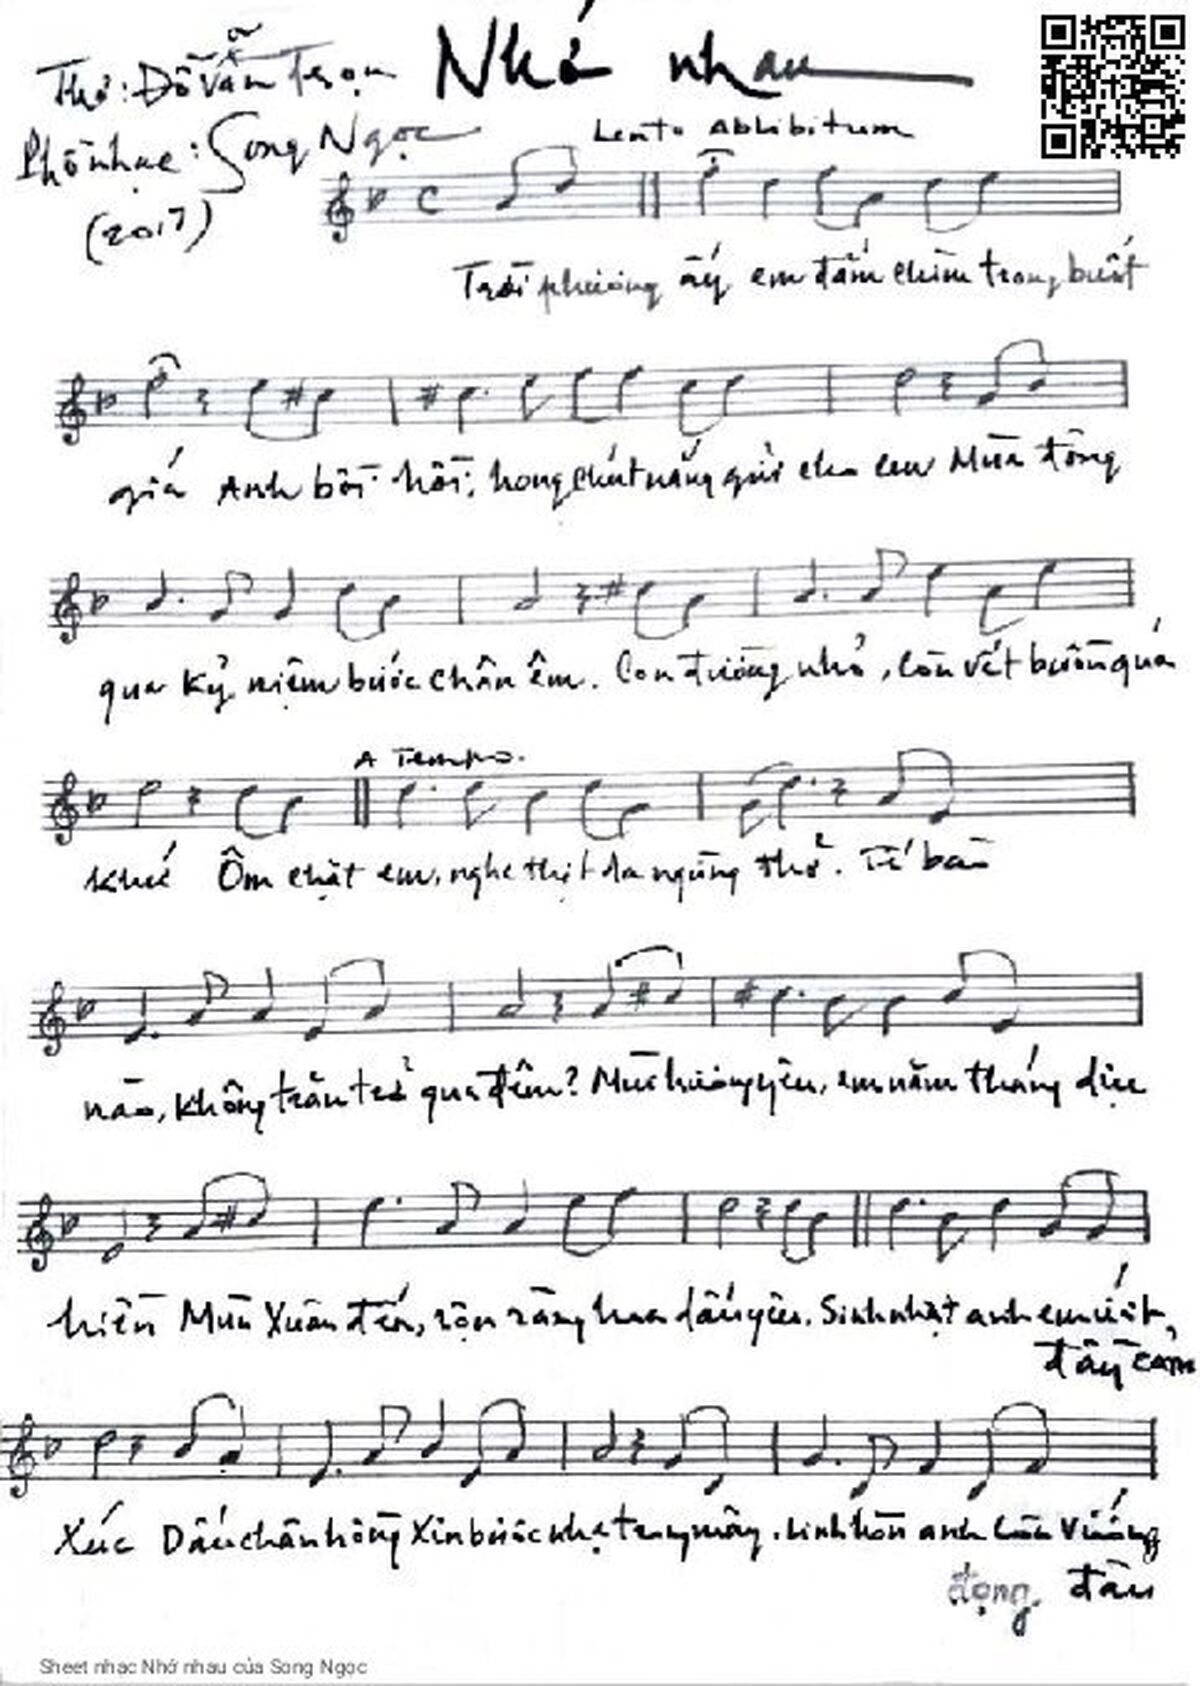 Nhớ nhau
Thơ: Đỗ Văn Trọn
Phổ nhạc: Song Ngọc
(2017)
Lento Ablibitum
Trời phương ấy em đắm chìm trong buốt
giá Anh bồi hồi, hong chút nắng gửi cho em Mùa đông
qua Kỷ niệm bước chân êm. Con đường nhỏ, còn vết buồn quá
khứ Ôm chặt em, nghe thịt da ngừng thở. Tế bào
A Tempo.
nào, không trăn trở qua đêm? Mùi hương yêu, em năm tháng dịu
hiền Mùa Xuân đến, rộn ràng hoa dấu yêu. Sinh nhật anh em
đầy cảm
Xúc Dấu chân hồng Xin bước nhẹ trong mây. Linh hồn anh Còn Vướng
đọng đâu
Sheet nhạc Nhớ nhau của Song Ngọc